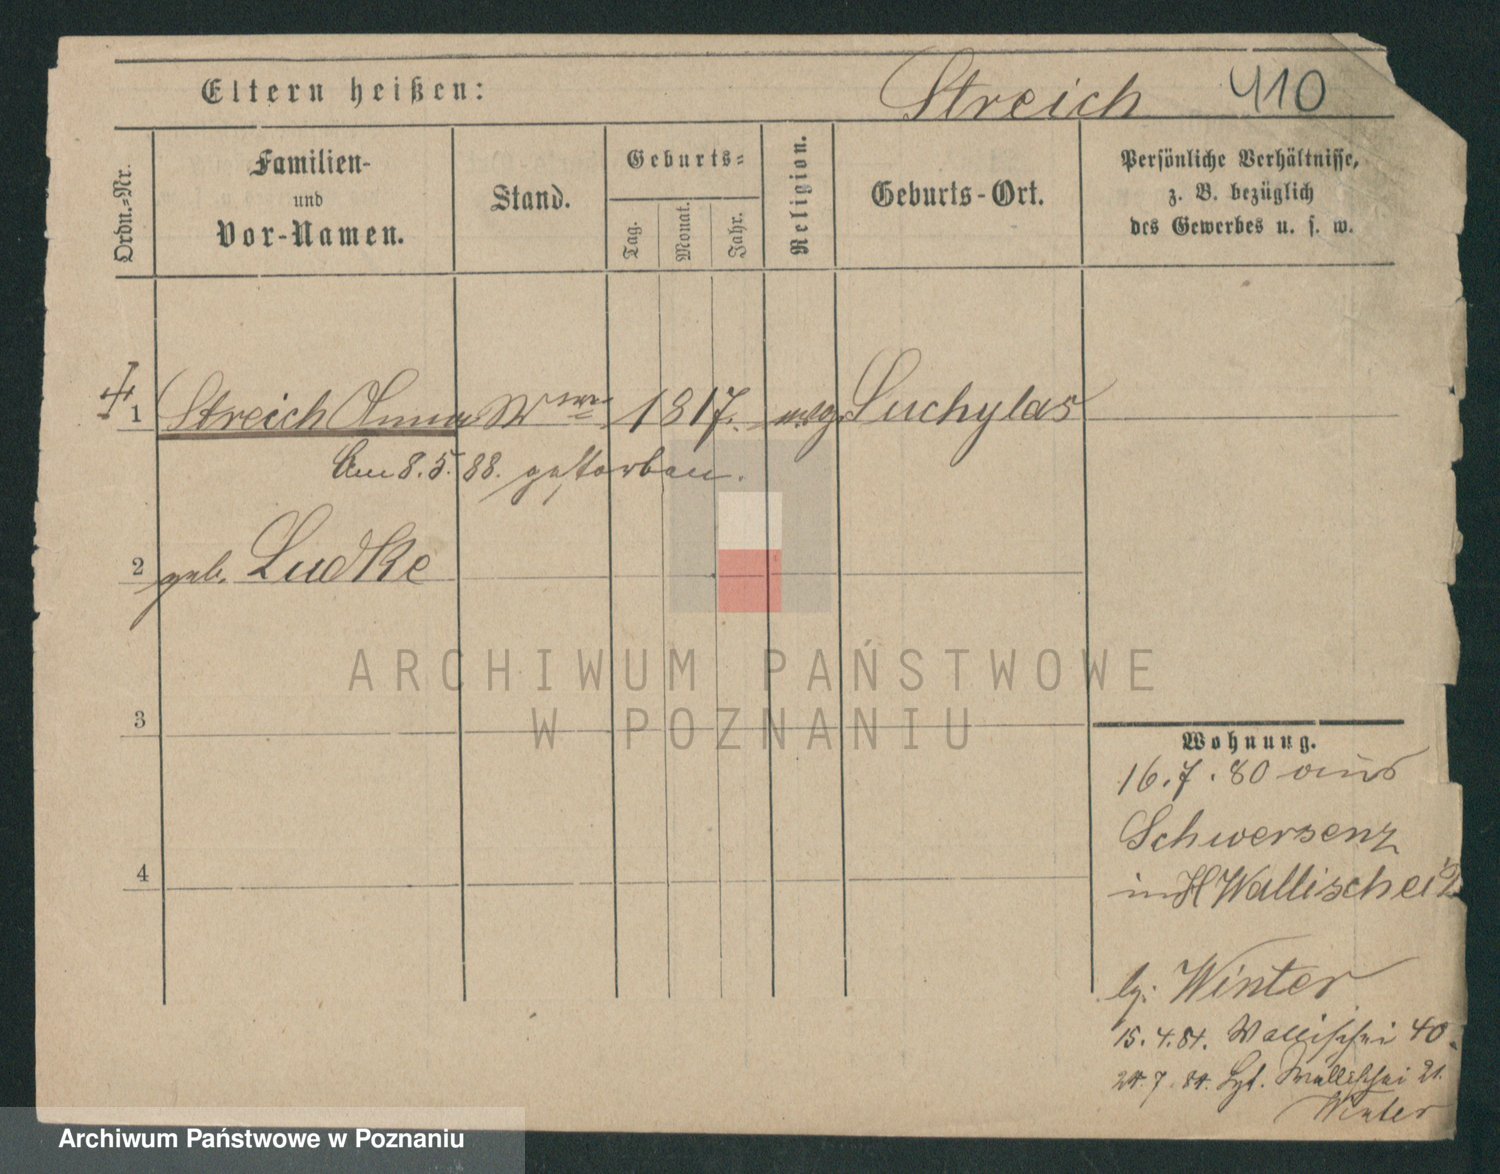 Eltern heißen: Streich 410
Ordn.-Nr.
Familien-
und
Vor-Namen.
Stand.
Geburts-
Tag.
Monat.
Jahr.
Religion.
Geburts-Ort.
Persönliche Verhältnisse,
z. B. bezüglich
des Gewerbes u. s. w.
1 Streich Anna Wwe 1817. evg. Suchylas
Am 8.5.88. gestorben.
2 geb. Ludke
3
4
ARCHIWUM PAŃSTWOWE
W POZNANIU
Wohnung.
16.7.80 aus
Schwersenz
Wallischei
Winter
15.4.84. Wallischei 40.
24.7.84. Wallischei 21.
Winter
Archiwum Państwowe w Poznaniu